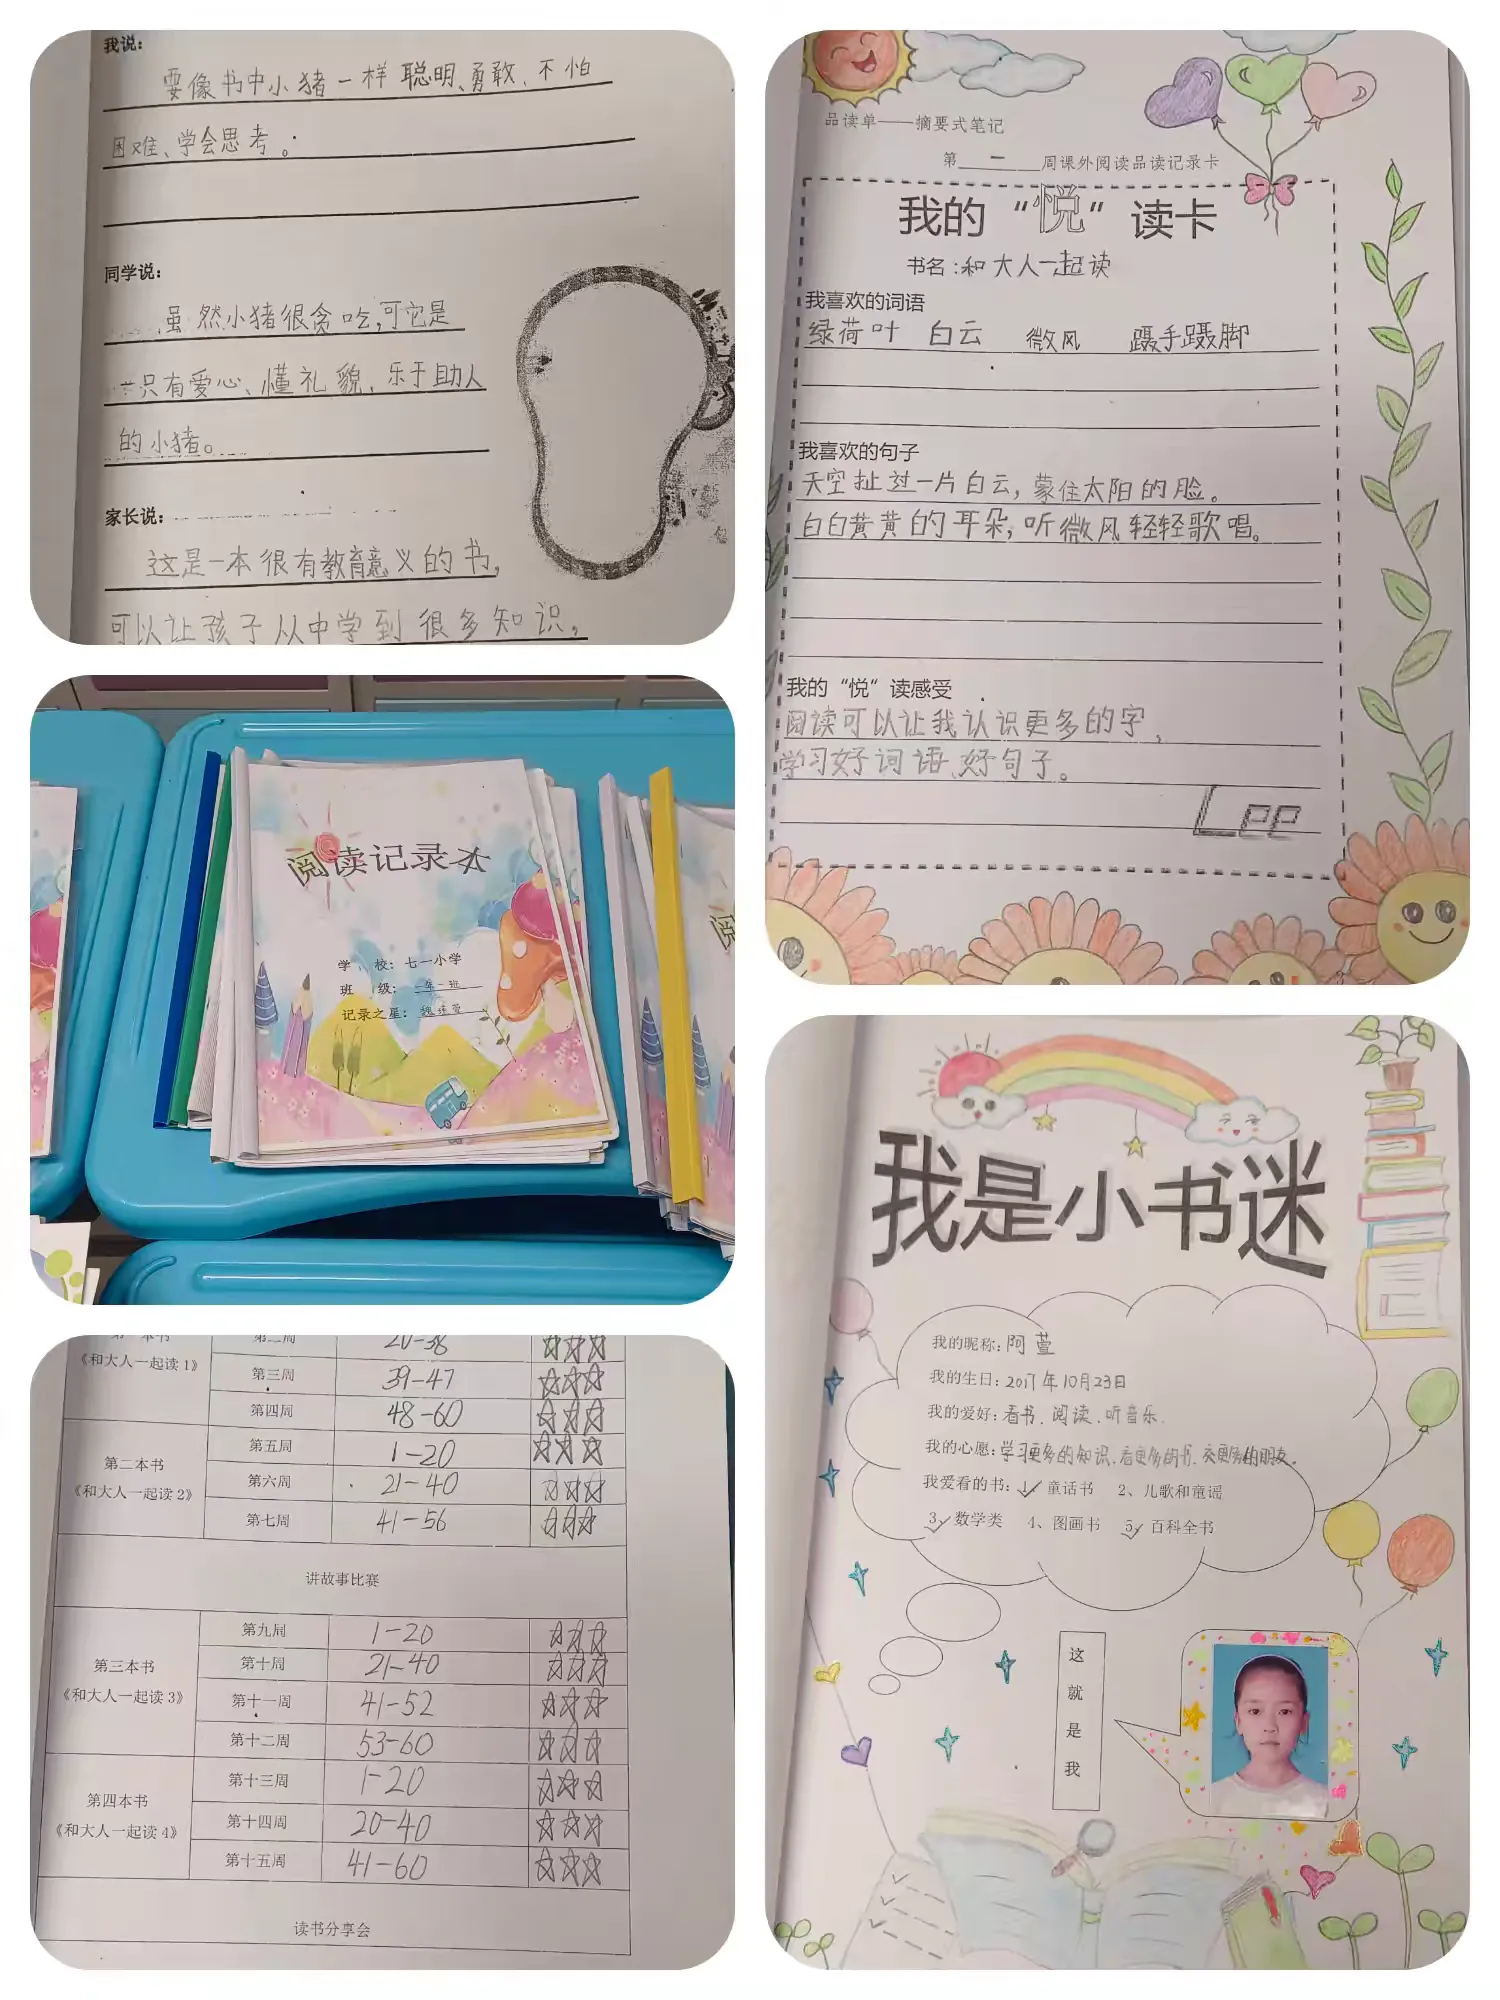 我说：
要像书中小猪一样聪明、勇敢、不怕
困难、学会思考。
同学说：
虽然小猪很贪吃,可它是
一只有爱心、懂礼貌、乐于助人
的小猪。
家长说：
这是一本很有教育意义的书,
可以让孩子从中学到很多知识,
品读单——摘要式笔记
第一周课外阅读品读记录卡
我的“悦”读卡
书名：和大人一起读
我喜欢的词语
绿荷叶 白云 微风 蹑手蹑脚
我喜欢的句子
天空扯过一片白云,蒙住太阳的脸。
白白黄黄的耳朵,听微风轻轻歌唱。
我的“悦”读感受
阅读可以让我认识更多的字,
学习好词语、好句子。
Lee
阅读记录本
学 校：七一小学
班 级：一年一班
记录之星：
第一本书
《和大人一起读1》
第二周 20-38
第三周 39-47
第四周 48-60
第二本书
《和大人一起读2》
第五周 1-20
第六周 21-40
第七周 41-56
讲故事比赛
第三本书
《和大人一起读3》
第九周 1-20
第十周 21-40
第十一周 41-52
第十二周 53-60
第四本书
《和大人一起读4》
第十三周 1-20
第十四周 20-40
第十五周 41-60
读书分享会
我是小书迷
我的昵称：阿萱
我的生日：2017年10月23日
我的爱好：看书、阅读、听音乐.
我的心愿：学习更多的知识、看更多的书、交更多的朋友。
我爱看的书：1、童话书 2、儿歌和童谣
3、数学类 4、图画书 5、百科全书
这就是我